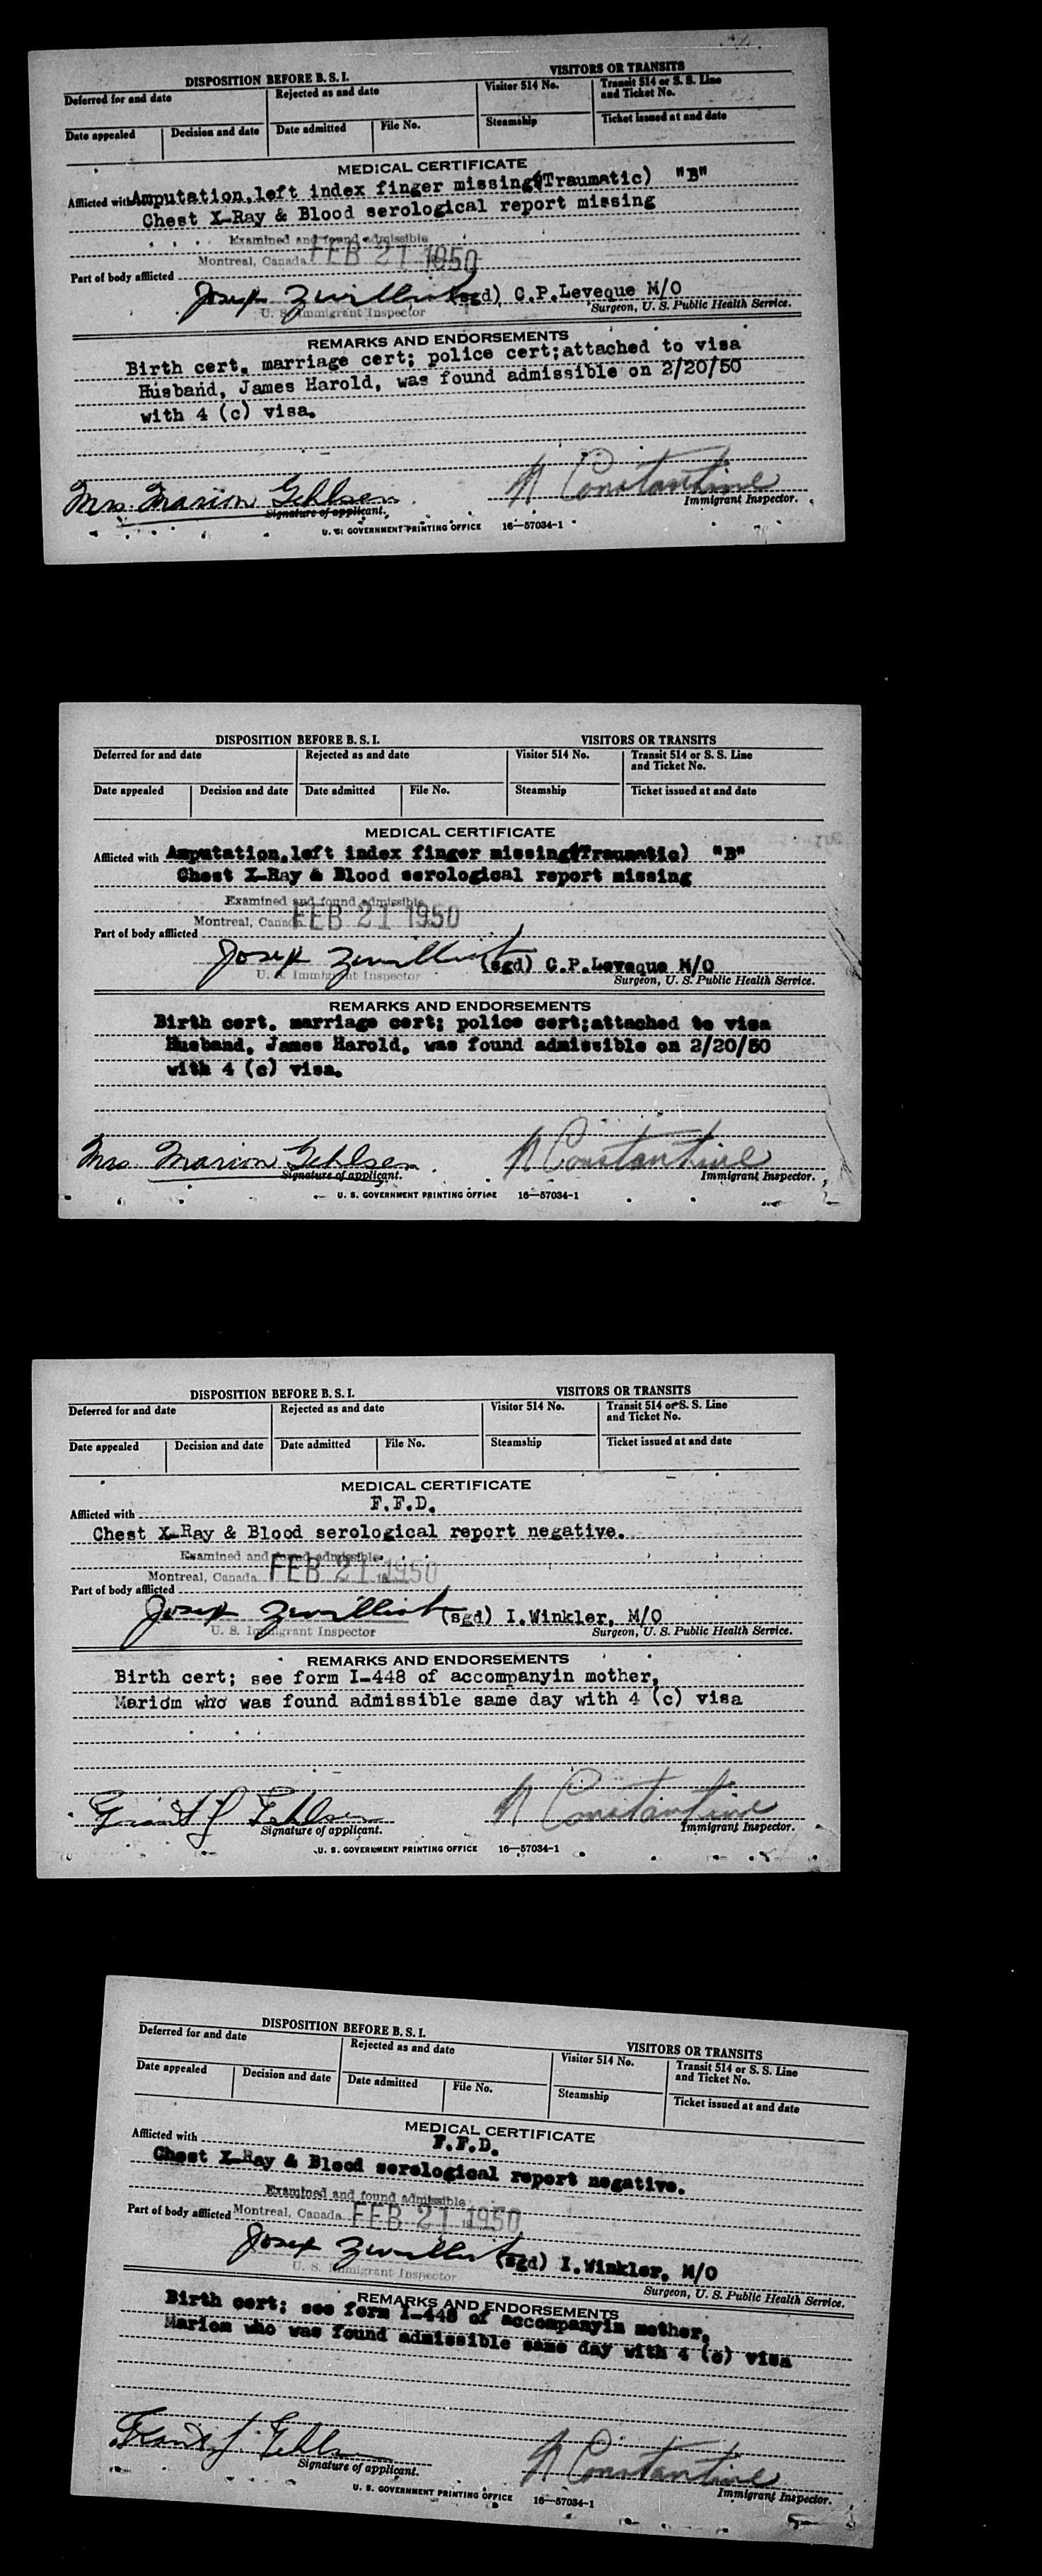 DISPOSITION BEFORE B. S. I.
VISITORS OR TRANSITS
Deferred for and date
Rejected as and date
Visitor 514 No.
Transit 514 or S. S. Line and Ticket No.
Date appealed
Decision and date
Date admitted
File No.
Steamship
Ticket issued at and date
MEDICAL CERTIFICATE
Afflicted with Amputation, left index finger missing (Traumatic) "B"
Chest X-Ray & Blood serological report missing
Examined and found admissible
Montreal, Canada FEB 21 1950
Part of body afflicted
Josep (sgd) C.P.Leveque M/O
U. S. Immigrant Inspector
Surgeon, U. S. Public Health Service.
REMARKS AND ENDORSEMENTS
Birth cert. marriage cert; police cert;attached to visa
Husband, James Harold, was found admissible on 2/20/50
with 4 (c) visa.
Mrs. Marion Gehlsen
N Constantine
Signature of applicant.
Immigrant Inspector.
U. S. GOVERNMENT PRINTING OFFICE 16—57034-1
DISPOSITION BEFORE B. S. I.
VISITORS OR TRANSITS
Deferred for and date
Rejected as and date
Visitor 514 No.
Transit 514 or S. S. Line and Ticket No.
Date appealed
Decision and date
Date admitted
File No.
Steamship
Ticket issued at and date
MEDICAL CERTIFICATE
Afflicted with Amputation, left index finger missing (Traumatic) "B"
Chest X-Ray & Blood serological report missing
Examined and found admissible
Montreal, Canada FEB 21 1950
Part of body afflicted
Josep (sgd) C.P.Leveque M/O
U. S. Immigrant Inspector
Surgeon, U. S. Public Health Service.
REMARKS AND ENDORSEMENTS
Birth cert. marriage cert; police cert;attached to visa
Husband, James Harold, was found admissible on 2/20/50
with 4 (c) visa.
Mrs. Marion Gehlsen
N Constantine
Signature of applicant.
Immigrant Inspector.
U. S. GOVERNMENT PRINTING OFFICE 16—57034-1
DISPOSITION BEFORE B. S. I.
VISITORS OR TRANSITS
Deferred for and date
Rejected as and date
Visitor 514 No.
Transit 514 or S. S. Line and Ticket No.
Date appealed
Decision and date
Date admitted
File No.
Steamship
Ticket issued at and date
MEDICAL CERTIFICATE
Afflicted with F.F.D.
Chest X-Ray & Blood serological report negative.
Examined and found admissible
Montreal, Canada FEB 21 1950
Part of body afflicted
Josep (sgd) I.Winkler, M/O
U. S. Immigrant Inspector
Surgeon, U. S. Public Health Service.
REMARKS AND ENDORSEMENTS
Birth cert; see form I-448 of accompanyin mother,
Mariom who was found admissible same day with 4 (c) visa
Grant J Gehlsen
N Constantine
Signature of applicant.
Immigrant Inspector.
U. S. GOVERNMENT PRINTING OFFICE 16—57034-1
DISPOSITION BEFORE B. S. I.
VISITORS OR TRANSITS
Deferred for and date
Rejected as and date
Visitor 514 No.
Transit 514 or S. S. Line and Ticket No.
Date appealed
Decision and date
Date admitted
File No.
Steamship
Ticket issued at and date
MEDICAL CERTIFICATE
Afflicted with F.F.D.
Chest X-Ray & Blood serological report negative.
Examined and found admissible
Montreal, Canada FEB 21 1950
Part of body afflicted
Josep (sgd) I.Winkler, M/O
U. S. Immigrant Inspector
Surgeon, U. S. Public Health Service.
REMARKS AND ENDORSEMENTS
Birth cert; see form I-448 of accompanyin mother,
Mariom who was found admissible same day with 4 (c) visa
J. Gehlsen
N Constantine
Signature of applicant.
Immigrant Inspector.
U. S. GOVERNMENT PRINTING OFFICE 16—57034-1